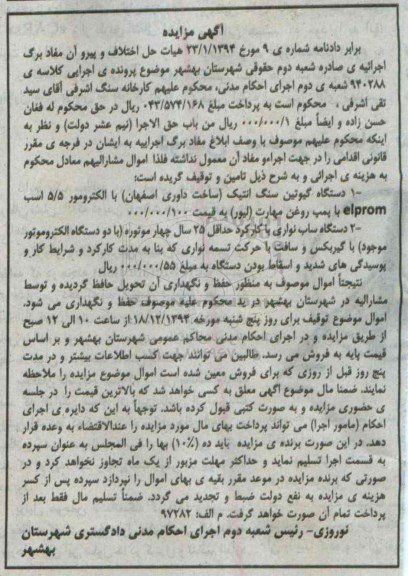 آگهی مزایده
برابر دادنامه شماره ی ۹ مورخ ۲۳/۱/۱۳۹۴ هیات حل اختلاف و پیرو آن مفاد برگ
اجرائیه ی صادره شعبه دوم حقوقی شهرستان بهشهر موضوع پرونده ی اجرایی کلاسه ی
۹۴۰۲۸۸ شعبه ی دوم اجرای احکام مدنی، محکوم علیهم کارخانه سنگ اشرفی آقای سید
تقی اشرفی ، محکوم است به پرداخت مبلغ ۰۴۳/۵۷۴/۱۶۸ ریال در حق محکوم له فغان
حسن زاده و ایضاً مبلغ ۰۰۰/۰۰۰/۱ ریال من باب حق الاجرا (نیم عشر دولت) و نظر به
اینکه محکوم علیهم موصوف با وصف ابلاغ مفاد برگ اجراییه به ایشان در فرجه ی مقرر
قانونی اقدامی را در جهت اجراءو مفاد آن معمول نداشته فلذا اموال مشارالیهم معادل محکوم
به هزینه ی اجرائی و به شرح ذیل تامین و توقیف گردیده است:
۱- دستگاه گیوتین سنگ آنتیک (ساخت داوری اصفهان) با الکترومور ۵/۵ اسب
elprom با پمپ روغن مهارت (لیور) به قیمت ۰۰۰/۰۰۰/۱۰۰
۲- دستگاه ساب نواری با کارکرد حداقل ۲۵ سال چهار موتوره (با دو دستگاه الکتروموتور
موجود) با گیربکس و سافت با حرکت تسمه نواری که بنا به مدت کارکرد و شرایط کار و
پوسیدگی های شدید و اسقاط بودن دستگاه به مبلغ ۰۰۰/۰۰۰/۵۵ ریال
نتیجتاً اموال موصوف به منظور حفظ و نگهداری آن تحویل حافظ گردیده و توسط
مشارالیه در شهرستان بهشهر در ید محکوم علیه موصوف حفظ و نگهداری می شود.
اموال موضوع توقیف برای روز پنج شنبه مورخه ۱۸/۱۲/۱۳۹۴ از ساعت ۱۰ الی ۱۲ صبح
از طریق مزایده و در اجرای احکام مدنی محاکم عمومی شهرستان بهشهر و بر اساس
قیمت پایه به فروش می رسد. طالبین می توانند جهت کسب اطلاعات بیشتر و در مدت
پنج روز قبل از روزی که برای فروش معین شده است اموال موضوع مزایده را ملاحظه
نمایند. ضمنا مال موضوع آگهی معلق به کسی خواهد شد که بالاترین قیمت را در جلسه
ی حضوری مزایده و به صورت کتبی قبول کرده باشد. توجهاً به این که دایره ی اجرای
احکام (مامور اجرا) می تواند پرداخت بهای مال مورد مزایده را عندالاقتضاء به وعده قرار
دهد. در این صورت برنده ی مزایده باید ده (۱۰٪) بها را فی المجلس به عنوان سپرده
به قسمت اجرا تسلیم نماید و حداکثر مهلت مزبور از یک ماه تجاوز نخواهد کرد و در
صورتی که برنده مزایده در موعد مقرر بقیه ی بهای اموال را نپردازد سپرده پس از کسر
هزینه ی مزایده به نفع دولت ضبط و تجدید می گردد. ضمناً تسلیم مال فقط بعد از
پرداخت تمام آن صورت خواهد گرفت. م الف: ۹۷۲۸۲
نوروزی- رئیس شعبه دوم اجرای احکام مدنی دادگستری شهرستان
بهشهر